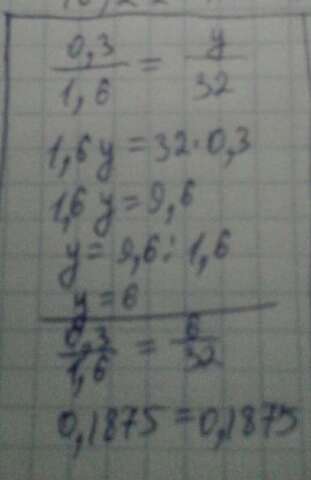 0,3/1,6 = y/32
1,6 y = 32 · 0,3
1,6 y = 9,6
y = 9,6 : 1,6
y = 6
0,3/1,6 = 6/32
0,1875 = 0,1875